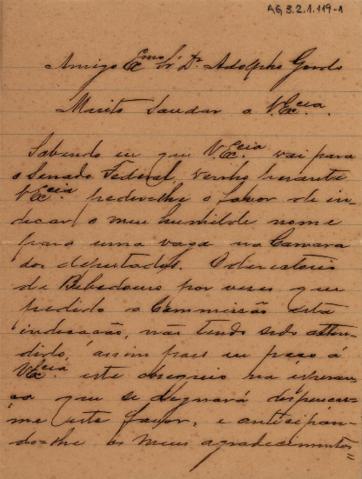 AG 3.2.1.119-1
Amigo Exmo Sr Dr Adolpho Gordo
Muito Saudar a V. Excia.
Sabendo eu que V. Excia vai para
o Senado Federal venho perante
V. Excia pedir-lhe o favor de in-
decar o meu humilde nome
para uma vaga na Camara
dos deputados. O directorio
de Bebedouro por vezes que
pedido a Commissão esta
indicação, não tendo sido atten-
dido, assim pois eu peço á
V. Excia. este obsequio na esperan-
sa que se dignará dispensar-
me este favor, e anticipan-
do-lhe os meus agradecimentos